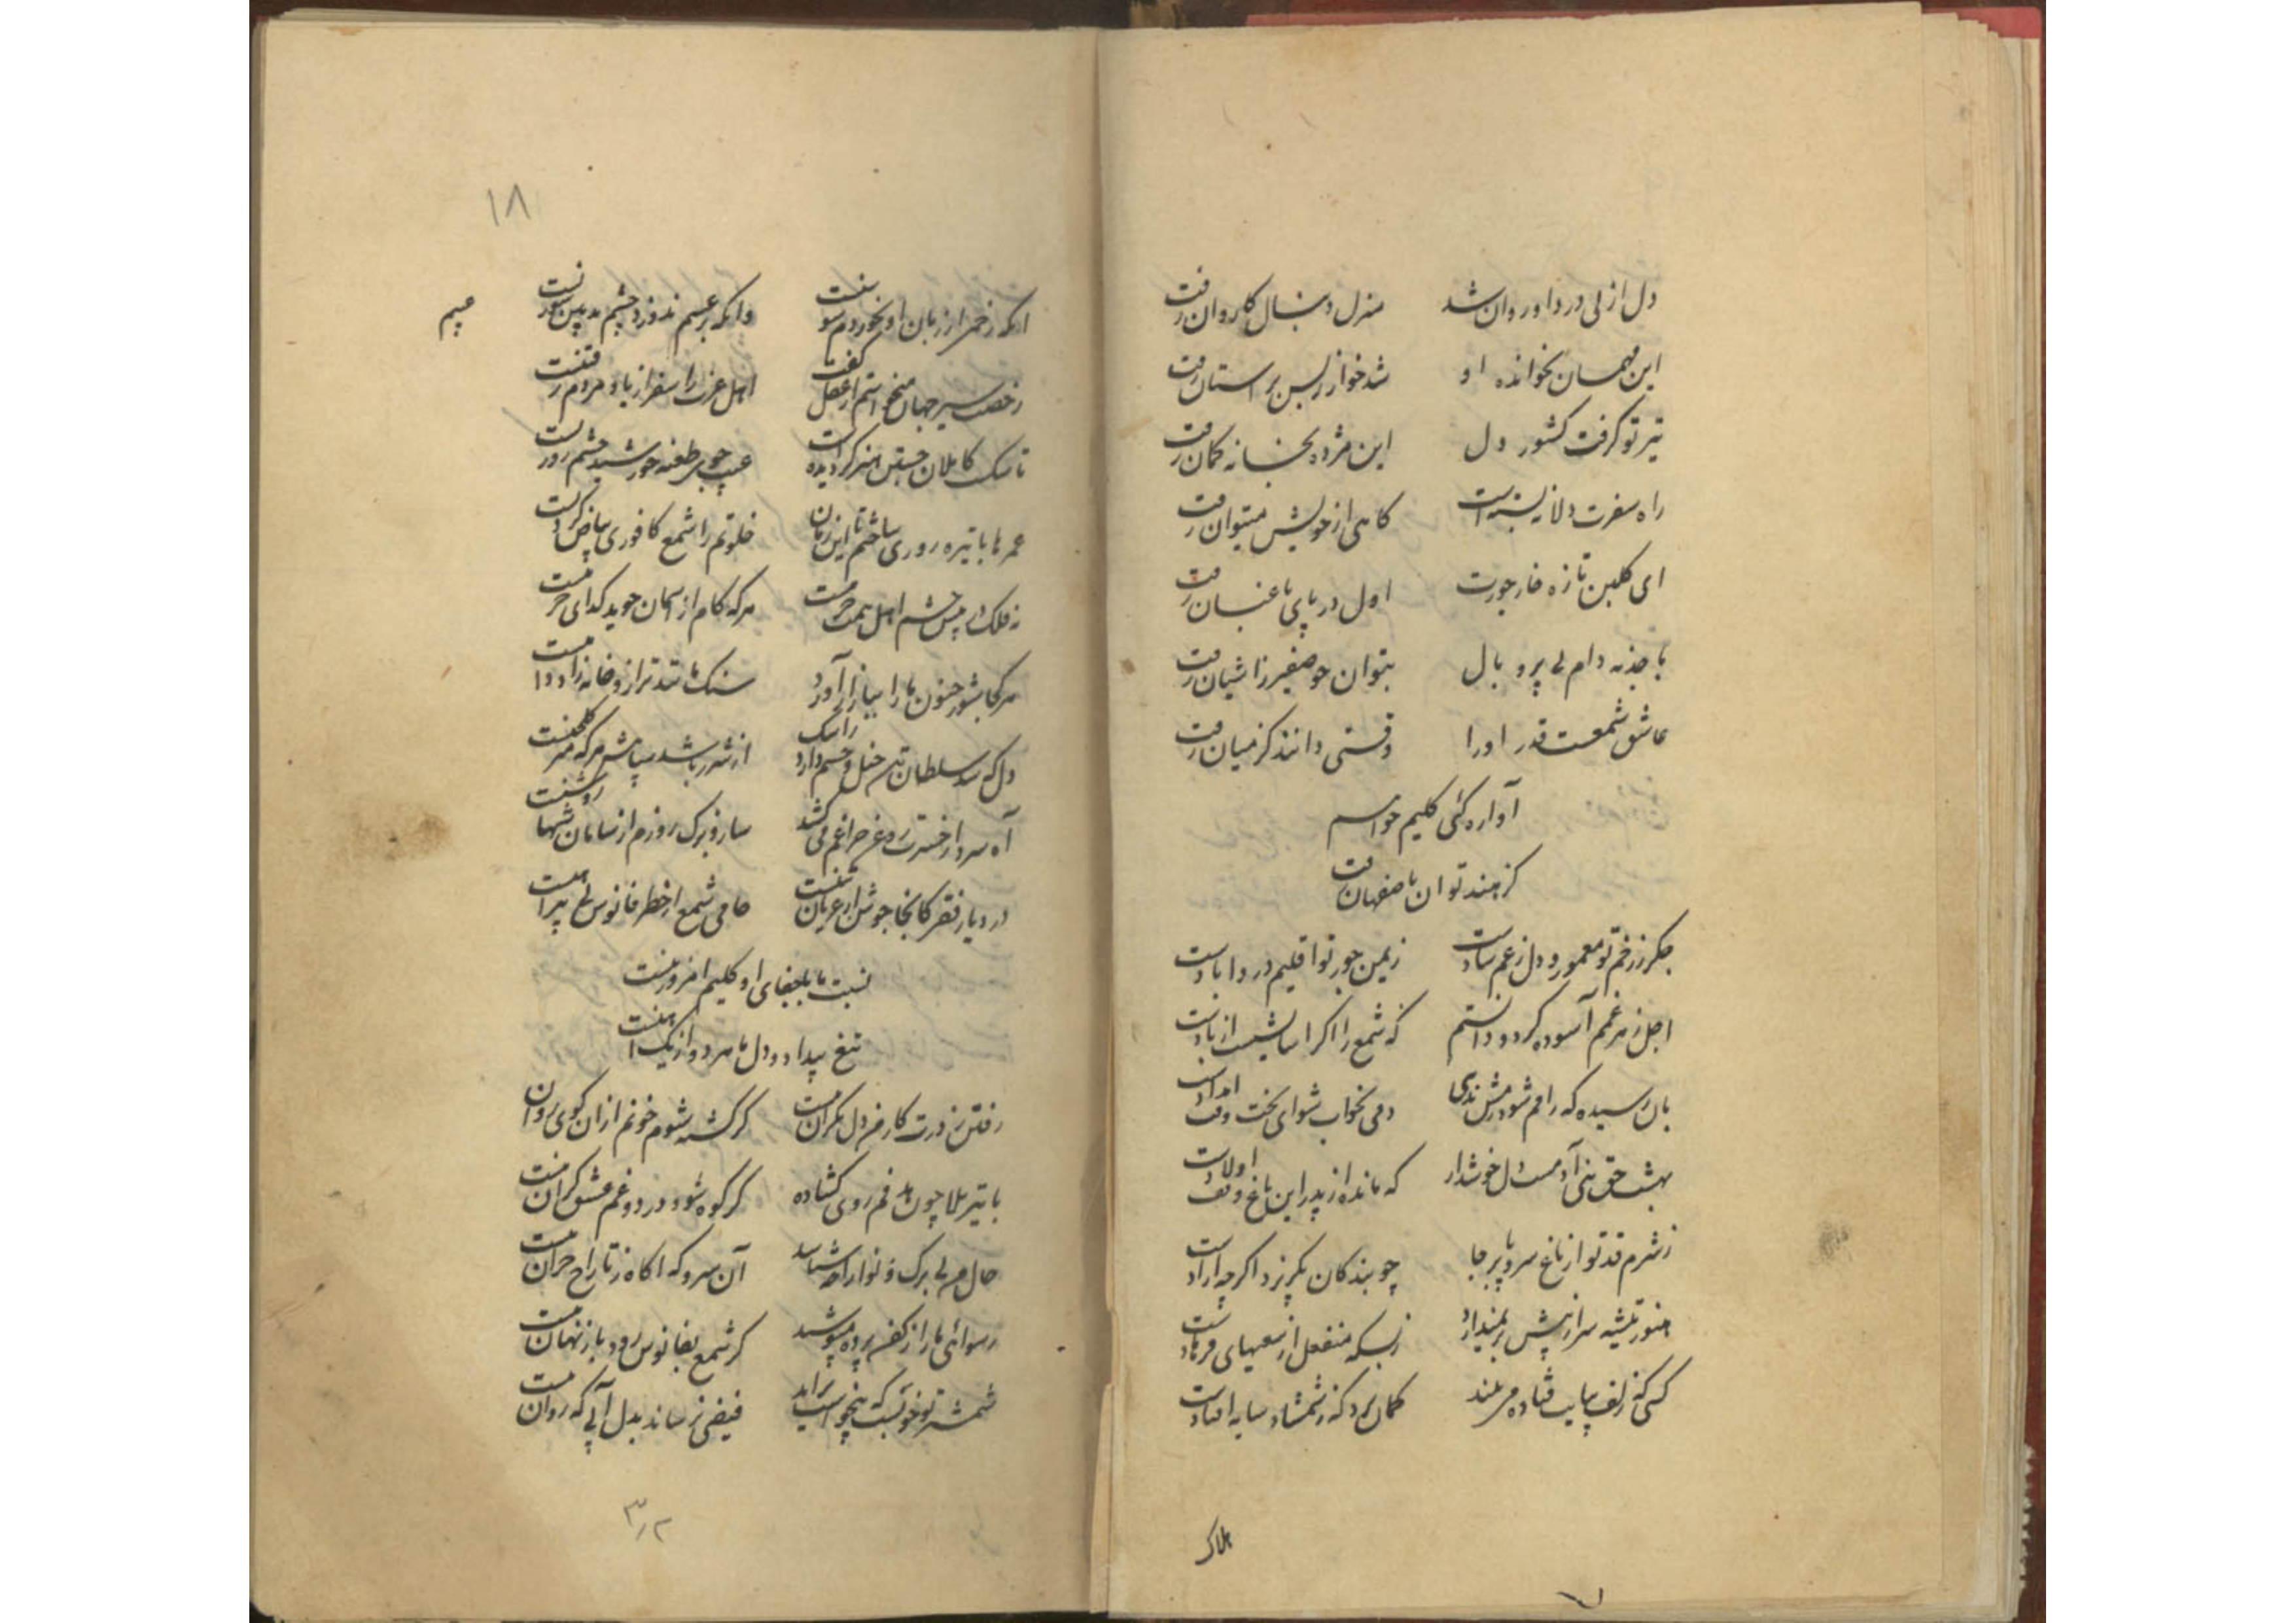 دل از پی درد او روان شد منزل دنبال کاروان رفت
این مهمان نخوانده او شد خوار ز بس بر استان رفت
تیر تو گرفت کشور دل این مژده بخانه کمان رفت
راه سفرت دلا نه بسته است کاهی از خویش میتوان رفت
ای گلبن تازه خار جورت اول در پای باغبان رفت
با جذبه دام بی پر و بال بتوان چو صفیر ز اشیان رفت
عاشق شمعست قدر او را وقتی دانند کز میان رفت
آواره کئی کلیم خواهم
کز هند توان باصفهان رفت
جکر ز زخم تو معمور و دل ز غم شادست ز یمن جور تو اقلیم درد ابادست
اجل ز هر غمم آسوده کرد و دانستم که شمع را اگر اسایشیست از بادست
دمی بخواب شو ای بخت وقت امدادست
بهشت حق بنی آدمست دل خوش دار که مانده از پدر این باغ وقف اولادست
ز شرم قد تو از باغ سرو پا بر جا چو بندکان بگریزد اکرچه ازادست
هنوز تیشه سر از پیش بر نمیدارد ز بسکه منفعل از سعیهای فرهادست
کسی که زلف بپایت فتاده مر بیند کمان برد که ز شمشاد سایه افتادست
هلاک
۱۸
انکه زخمی از زبان او نخوردم سوزنست وانکه بر عیبم ندوزد چشم بد بین سوزنست
عیبم
رخصت سیر جهان میخواستم از عقل گفت اهل عزت را سفر از یاد مردم رفتنست
تا سبک کاملان جستن هنر کردیده است عیب جویی طعنه خورشید چشم روزنست
عمرها با تیره روزی ساختم تا این زمان خلوتم را شمع کافوری بیاض کردنست
نه فلک در پیش چشم اهل همت خرمنست هر که کام از اسمان جوید کدای خرمنست
هر کجا شور جنون ما را ببازار آورد سنک ها تند ترازو خانه زاد دامنست
آه سرد از حسرت روغن چراغم می کشد ساز و برک روزم از سامان شبها روشنست
در دیار فقر کانجا جوشن از عریان تنیست حامی شمع از خطر فانوس بی پیراهنست
نسبت ما با جفای او کلیم امروز نیست
تیغ بیداد و دل ما هر دو از یک اهنست
رفتن ز درت کار من دل نکرانست کر کشته شوم خونم ازان کوی روان نیست
با تیر بلا چون هدفم روی کشاده کر کوه شود درد و غم عشق کران نیست
حال من بی برک و نوا را چه شناسد آن سرو که اکاه ز تاراج خزان نیست
رسوائی ما را ز کفن پرده مپوشید کر شمع بفانوس رود باز نهان نیست
فیضی نرساند بدل آبی که روان نیست